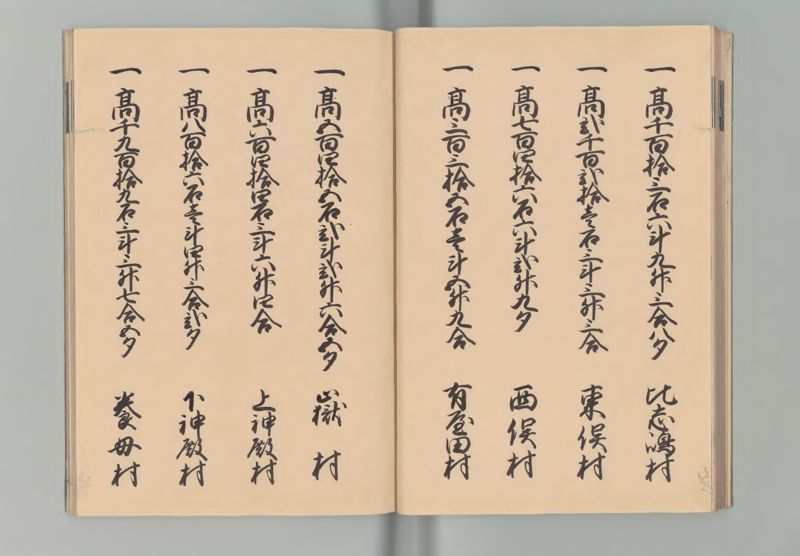 一高千百拾三石六斗九升三合八夕 比志嶋村
一高弐千百弐拾壱石三斗三升三合 東俣村
一高七百四拾六石六斗弐升九夕 西俣村
一高三百三拾五石壱斗五升九合 有屋田村
一高五百四拾五石弐斗弐升六合五夕 山嶽村
一高六百四拾四石三斗六升四合 上神殿村
一高八百拾六石壱斗四升三合弐夕 下神殿村
一高千九百拾九石三斗三升七合五夕 養母村